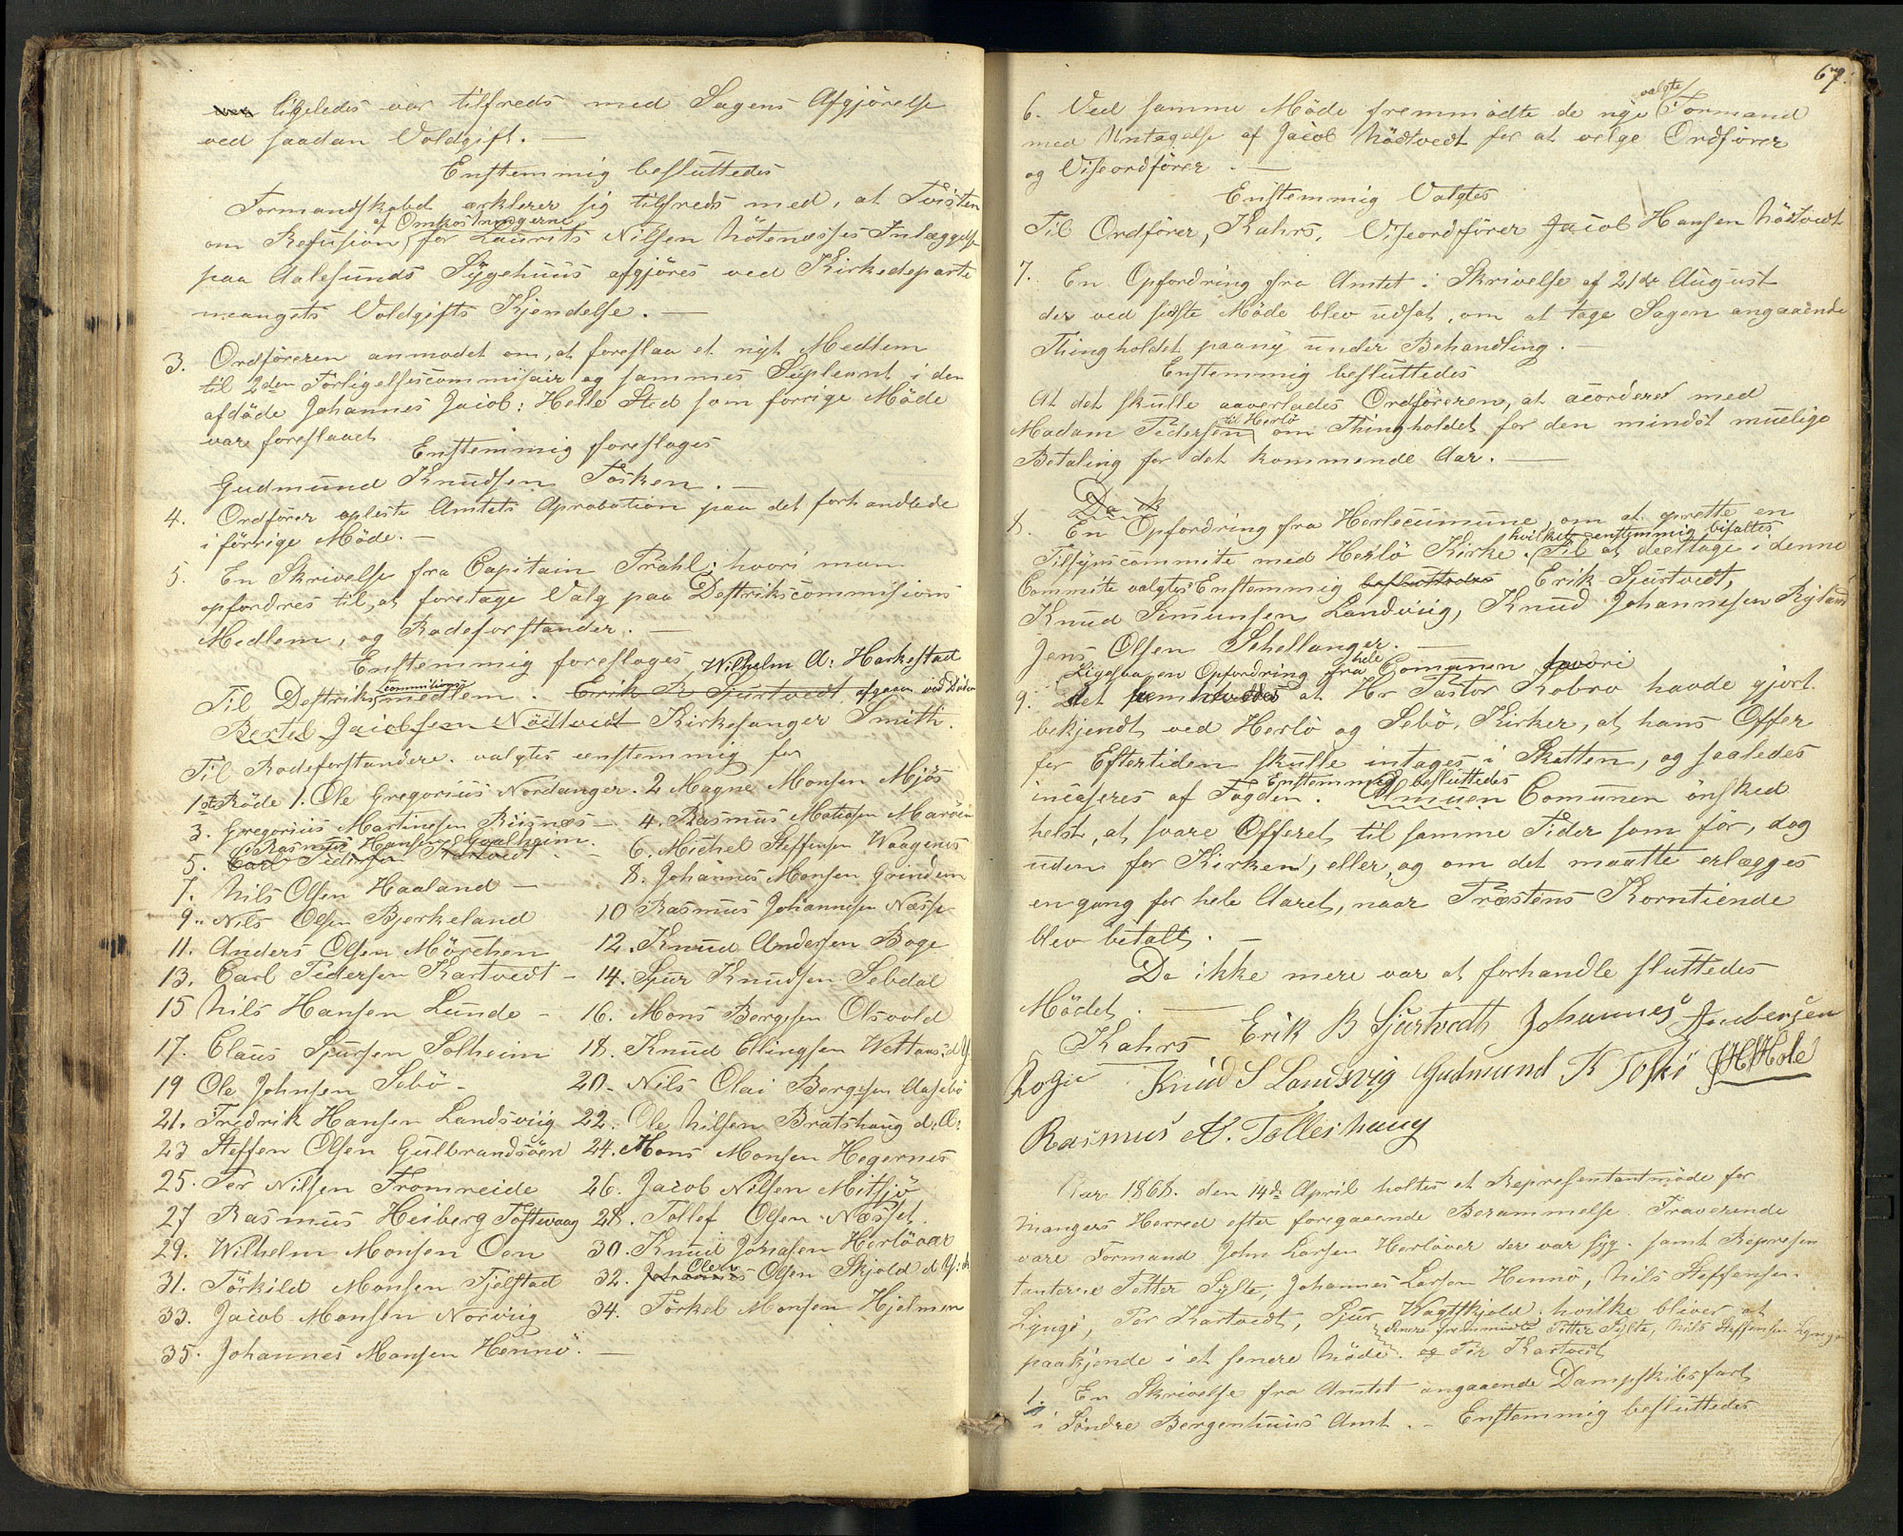 ligeledes var tilfreds med Sagens Afgjörelse
ved saadan Voldgift. —
Enstemmig besluttedes
Formandskabet erklerer sig tilfreds med, at Tvisten
af Omkostningerne
om Refusion for Laurits Nilsen Nötenæsses Inlæggelse
paa Aalesunds Sÿgehuus afgjöres ved Kirkedeparte
mangets Voldgifts Kjendelse. —
3. Ordföreren anmodet om, at foreslaa et nÿt Medlem
til 2den Forligelsescommisair og sammes Supleant i den
afdöde Johannes Jacob: Helle Sted som forrige Möde
var foreslaaet.
Enstemmig foreslages
Gudmund Knudsen Tosken. —
4. Ordförer opleste Amtets Aprobation paa det forhandlede
i förrige Möde. —
5. En Skrivelse fra Capitain Prahl; hvori man
opfordres til, at foretage Valg paa Destrikscommisions
Medlem, og Rodeforstander. —
Enstemmig foreslages Wilhelm A: Harkestad
commisions
Til Destriks medlem. Erik B Sjurtvedt afgaaen ved Döden
Bertel Jacobsen Nödtvedt Kirkesanger Smith.
Til Rodeforstandere valgtes eenstemmig for
1ste Röde 1. Ole Gregorius Nordanger. 2 Magne Monsen Mjös
3. Gregorius Martinesen Riisnæs — 4. Rasmus Matiasen Maröen
Rasmus Hansen Gvalheim.
5. Carl Pedersen Kartvedt. — 6. Michel Steffensen Waagenes
7. Nils Olsen Haaland — 8. Johannes Monsen Grindem
9. Nils Olsen Bjerkeland 10 Rasmus Johannesen Næsse
11. Anders Olsen Mörchen 12. Knud Andersen Boge
13. Carl Pedersen Kartvedt — 14. Sjur Knudsen Sebdal
15 Nils Hansen Lunde — 16. Mons Bergesen Olsvold
17. Claus Sjursen Solheim 18. Knud Ellingsen Wettaas d.Y.
19 Ole Johnsen Sebö — 20 — Nils Olai Bergesen Aasebö
21. Fredrik Hansen Landsviig 22. Ole Nilsen Bratshaug d: Æ:
23 Steffen Olsen Gulbrandsöen 24. Mons Monsen Hegernes
25. Per Nilsen Fromreide 26. Jacob Nilsen Mitsjö
27 Rasmus Heiberg Toftevaag 28. Tollef Olsen Næsset.
29. Wilhelm Monsen Oen 30. Knud Jonasen Herlövær
Olen
31. Törkild Monsen Tjelstad 32. Johannes Olsen Skjold d.Y:
33. Jacob Monsen Norviig 34. Törkel Monsen Hjelmen
35. Johannes Monsen Hennö. —
67.
valgte
6. Ved samme Möde fremmödte de nÿe Formænd
med Untagelse af Jacob Nödtvedt for at velge Ordförer
og Viseordförer. —
Enstemmig Valgtes
Til Ordförer, Kahrs, Viseordförer Jacob Hansen Nödtvedt
7. En Opfordring fra Amtet i Skrivelse af 21de August
der ved sidste Möde blev udsat, om at tage Sagen angaaende
Thingholdet paanÿ under Behandling. —
Enstemmig besluttedes
At det skulle overlades Ordföreren, at acordere med
til Herlö
Madam Pedersen om Thingholdet for den mindst muelige
Betaling for det kommende Aar. —
Da ik
8. En Opfordring fra Herlecumune, om at oprette en
hvilket enstemmig bifaltes
Tilsÿnscommite med Herlö Kirke. Til at deeltage i denne
Commite valgtes Enstemmig besluttedes Erik Sjurtvedt,
Knud Simunsen Landsviig, Knud Johannesen Rÿland
Jens Olsen Schellanger. —
Ligesaa en Opfordring fra hele Comunen hvori
9. det at Hr Pastor Kobro havde gjort
bekjendt ved Herlö og Sebö Kirker, at hans Offer
for Eftertiden skulle intages i Skatten, og saaledes
Enstemmig besluttedes
incaseres af Fogden. Almuen Comunen önsked
helst, at svare Offeret til samme Tider som för, dog
uden for Kirken, eller, og om det maatte erlægges
en gang for hele Aaret, naar Præstens Korntiende
blev betalt. —
Da ikke mere var at forhandle sluttedes
Mödet. —
Kahrs Erik B Sjurtvedt Johannes Andersen
Knud S Landsvig Gudmund K Toskö JHHole
Rasmus N. Tolleshaug
Aar 1868. den 14de April holtes et Representantmöde for
Mangers Herred efter foregaaende Berammelse. Fraverende
vare Formand John Larsen Herlöver der var sÿg. samt Represen
tanterne Petter Sylte, Johannes Larsen Hennö, Nils Steffensen
Lÿngö, Per Kartvedt, Sjur Vagtskjold. hvilke bliver at
senere fremmödte Petter Sylte, Nils Steffensen Lyngö
paakjende i et senere Möde. og Per Kartvedt
1. En Skrivelse fra Amtet angaaende Dampskibsfart
i Söndre Bergenhuus Amt. — Enstemmig besluttedes